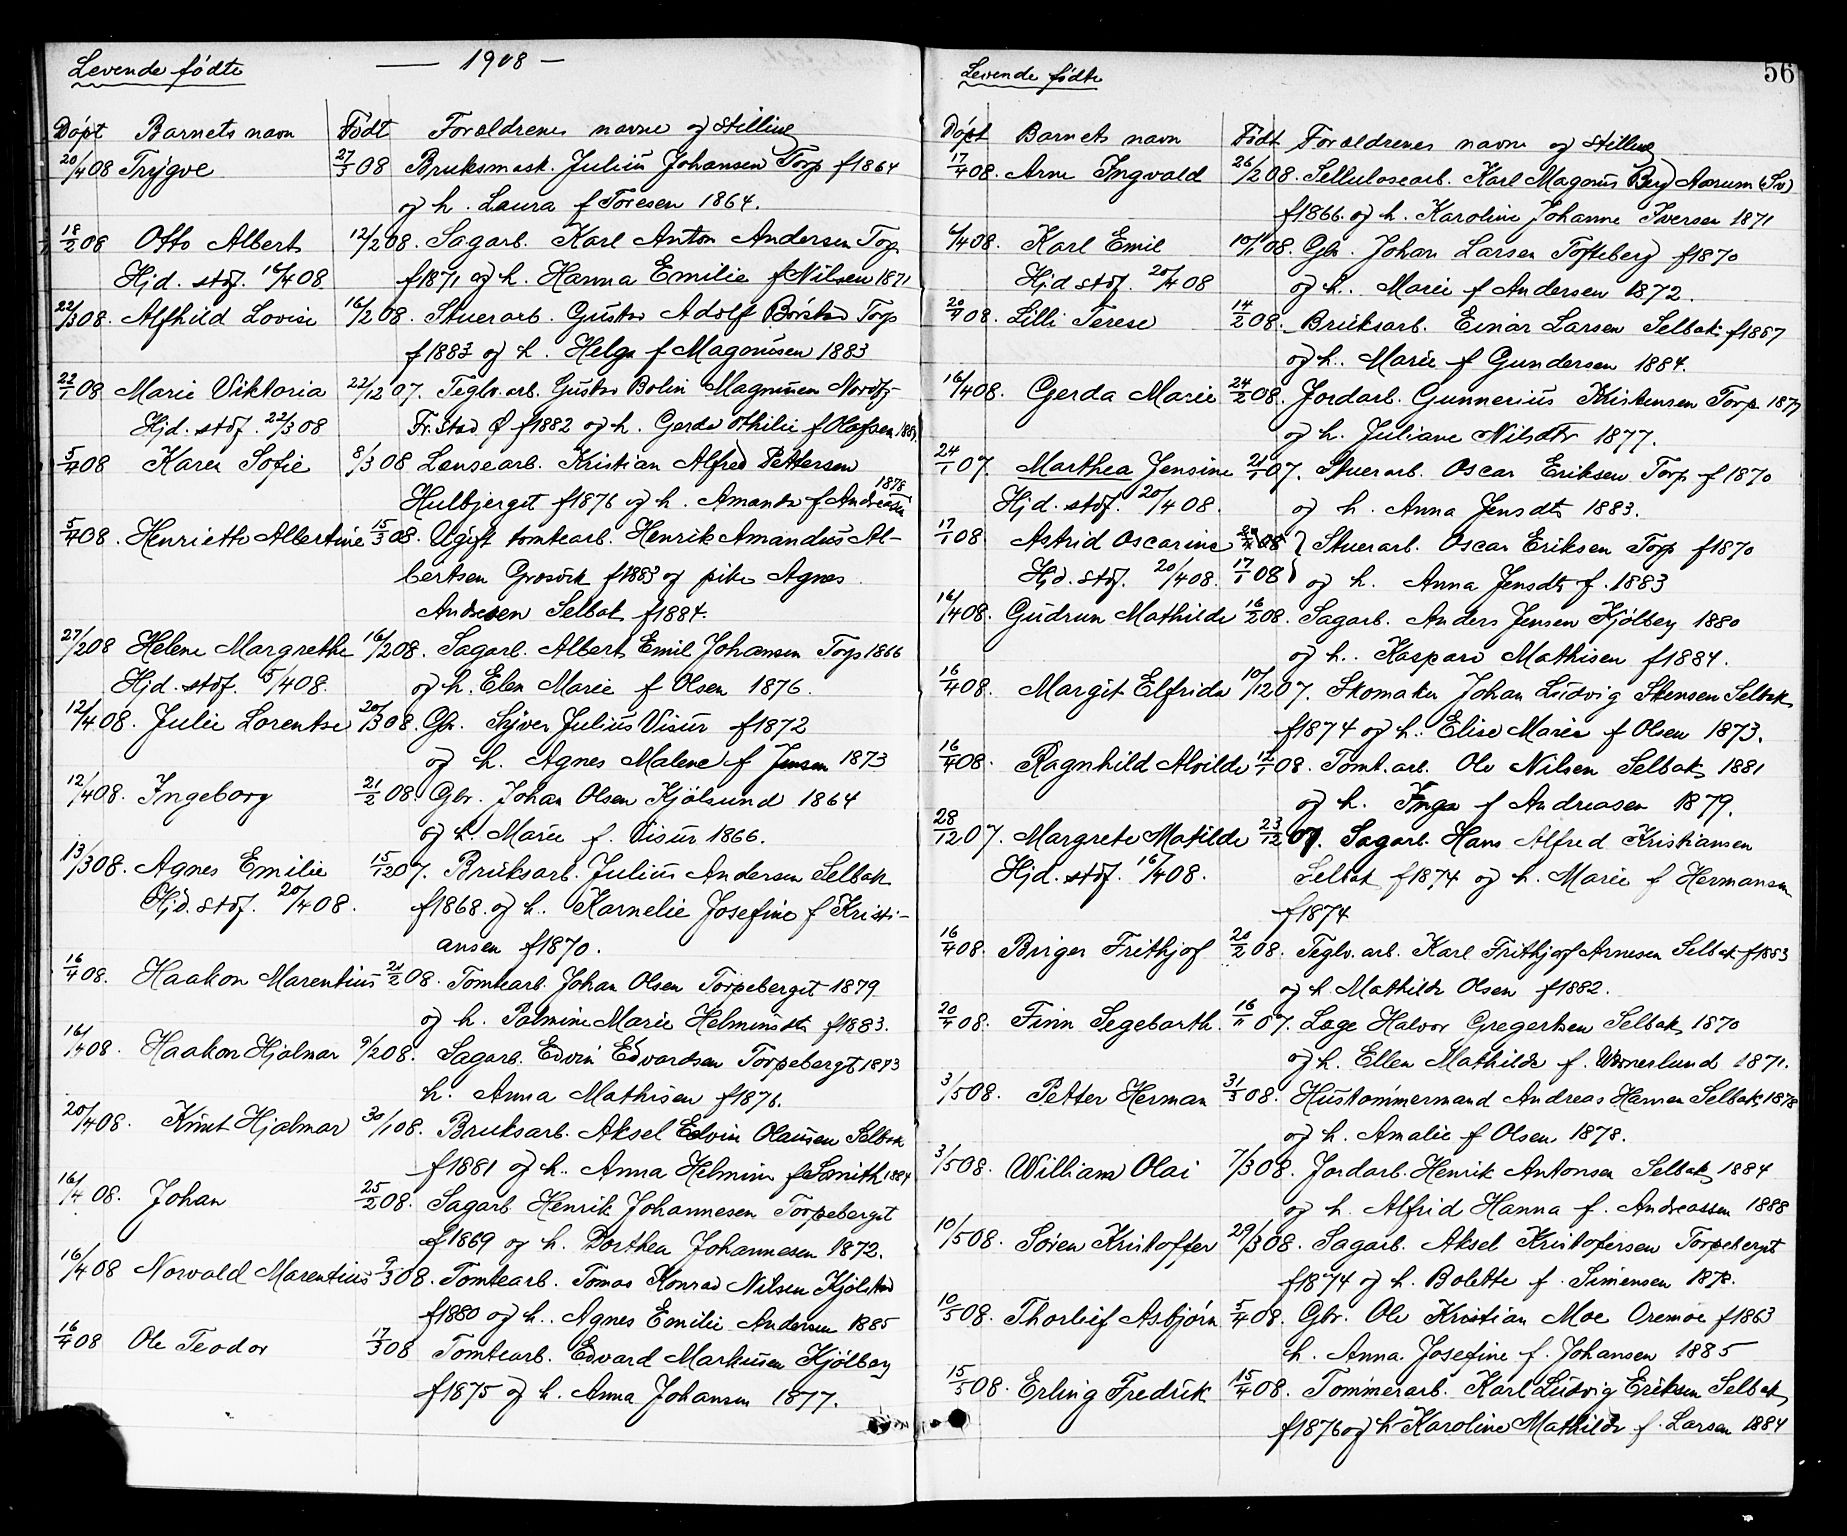 Levende fødte — 1908 —
Døpt Barnets navn Født Foreldrenes navne og stilling
20/4 08 Trygve 27/3 08 Bruksmask. Julius Johansen Torp f 1864
og h. Laura f Toresen 1864.
18/2 08 Otto Albert 12/2 08. Sagarb. Karl Anton Andersen Torp
Hjd. stdf. 16/4 08 f 1871 og h. Hanna Emilie f Nilsen 1871
22/3 08. Alfhild Lovise 16/2 08. Stuerarb. Gustav Adolf Børstad Torp
f 1883 og h. Helga f Magnusen 1883
22/1 08 Marie Viktoria 22/12 07. Teglv.arb. Gustav Bolin Magnusen
Hjd. stdf. 22/3 08 Fr.stad Ø f 1882 og h. Gerda Othilie f Olafsen
5/4 08 Karen Sofie 8/3 08 Lensearb. Kristian Alfred Pettersen
Hulbjerget f 1876 og h. Amanda f Andreasen 1878
5/4 08. Henriette Albertine 15/3 08. Ugift tomtearb. Henrik Amandus Al-
bertsen Grosvik f 1883 og pike Agnes
Andresen Selbak f 1884.
27/2 08 Helene Margrethe 16/2 08. Sagarb. Albert Emil Johansen Torp 1866
Hjd. stdf. 5/4 08. og h. Elen Marie f Olsen 1876.
12/4 08. Julie Lorentse 20/3 08. Gbr. Syver Julius Visur f 1872
og h. Agnes Malene f Jensen 1873
12/4 08. Ingeborg 21/2 08. Gbr. Johan Olsen Kjølsund 1864
og h. Marie f. Visur 1866.
13/3 08. Agnes Emilie 15/12 07. Bruksarb. Julius Andersen Selbak
Hjd. stdf. 20/4 08. f 1868. og h. Karnelie Josefine f Kristi-
ansen f 1870.
16/4 08. Haakon Marentius 21/2 08. Tomtearb. Johan Olsen Torpeberget 1879
og h. Palmine Marie Helmunsdtr f 1883.
16/4 08. Haakon Hjalmar 9/2 08. Sagarb. Edvin Edvardsen Torpebergt 1873
h. Anna Mathisen f 1876.
20/4 08. Knut Hjalmar 30/1 08. Bruksarb. Aksel Edvin Olausen Selbak
f 1881 og h. Anna Helmine f Smith 1884
16/4 08. Johan 25/2 08. Sagarb Henrik Johannesen Torpeberget
f 1869 og h. Dorthea Johannesen 1872.
16/4 08 Norvald Marentius 9/3 08. Tomtearb. Tomas Konrad Nilsen Kjølstad
f 1880 og h. Agnes Emilie Andersen 1885
16/4 08 Ole Teodor 17/3 08 Tomtearb. Edvard Markusen Kjølberg
f 1875 og h. Anna Johansen 1877.
Levende fødte 56
Døpt Barnets navn Født Foreldrenes navne og stilling
17/4 08. Arne Ingvald 26/2 08. Sellulosearb. Karl Magnus Berg Aarum (Sv)
f 1866. og h. Karoline Johanne Iversen 1871
6/4 08. Karl Emil 10/1 08. Gbr. Johan Larsen Tofteberg f 1870
Hjd stdf. 20/4 08 og h. Marie f Andersen 1872.
20/4 08. Lilli Terese 14/2 08. Bruksarb. Einar Larsen Selbak f 1887
og h. Marie f Gundersen 1884.
16/4 08. Gerda Marie 24/2 08. Jordarb. Gunnerius Kristensen Torp 1877
og h. Juliane Nilsdtr 1877.
24/1 07. Marthea Jensine 21/1 07. Stuerarb. Oscar Eriksen Torp f 1870
Hjd. stdf. 20/4 08. og h. Anna Jensdtr 1883.
17/1 08 Astrid Oscarine Stuerarb. Oscar Eriksen Torp f 1870
Hjd. stdf. 20/4 08. 17/1 08 og h. Anna Jensdtr f. 1883
16/4 08. Gudrun Mathilde 16/2 08. Sagarb. Anders Jensen Kjølberg 1880
og h. Kaspara Mathisen f 1884.
16/4 08. Margit Elfrida 10/12 07. Skomaker Johan Ludvig Stensen Selbak
f 1874 og h. Elise Marie f Olsen 1873.
16/4 08. Ragnhild Alvilde 12/1 08. Tomt.arb. Ole Nilsen Selbak 1881
og h. Inga f Andreasen 1879.
28/12 07. Margrete Matilde 23/12 07. Sagarb. Hans Alfred Kristiansen
Hjd. stdf. 16/4 08. Selbak f 1874 og h. Marie f Hermansen
f 1874
16/4 08. Birger Frithjof 20/2 08. Teglv.arb. Karl Frithjof Arnesen Selbak f 1883
og h Mathilde Olsen f 1882.
20/4 08. Finn Segebarth. 16/11 07. Læge Halvor Gregertsen Selbak 1870
og h. Ellen Mathilde f. Wennerlund 1871.
3/5 08. Petter Herman 31/3 08. Hustømmermand Andreas Hansen Selbak 1878
og h. Amalie f Olsen 1878.
3/5 08. William Olai 7/3 08. Jordarb. Henrik Antonsen Selbak 1884
og h. Alfrid Hanna f. Andreassen 1888
10/5 08. Søren Kristoffer 29/3 08. Sagarb. Aksel Kristofersen Torpebergt
f 1874 og h. Bolette f. Simensen 1878.
10/5 08. Thorleif Asbjørn 5/4 08. Gbr. Ole Kristian Moe Oremoe f 1863
h. Anna Josefine f. Johansen 1885
15/5 08. Erling Fredrik 15/4 08. Tømmerarb. Karl Ludvig Eriksen Selbak
f 1876 og h Karoline Mathilde f. Larsen 1884